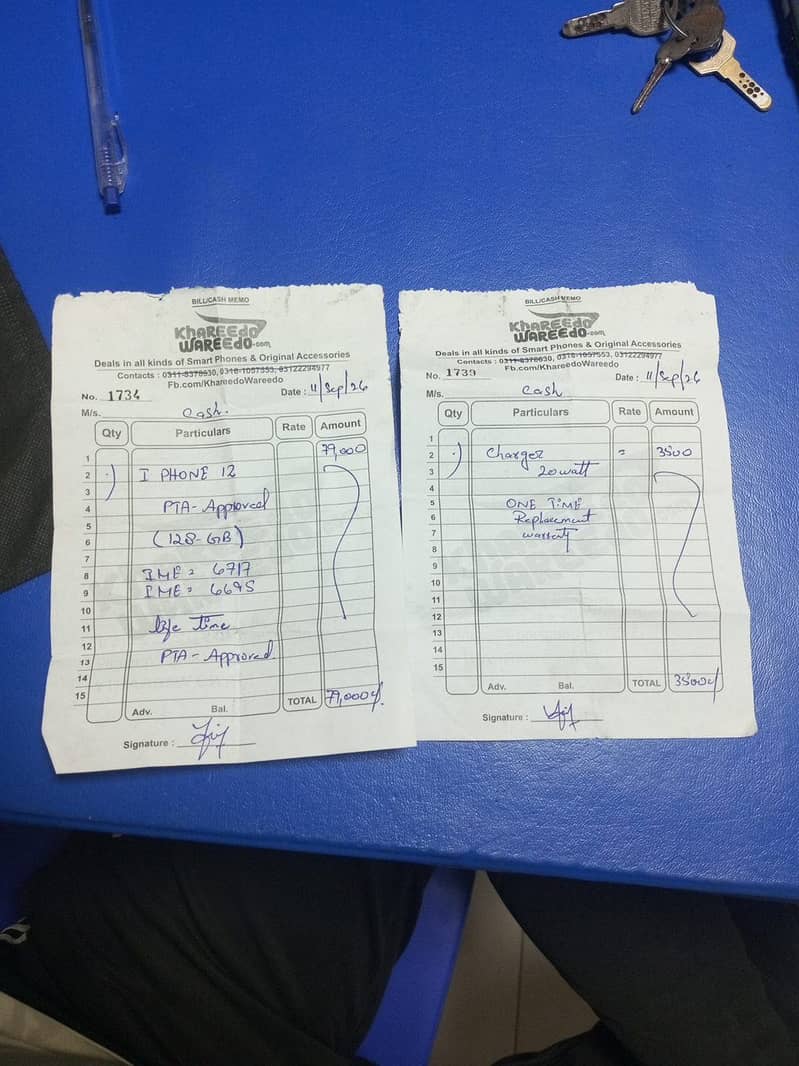 BILL/CASH MEMO
KHAREEdo
WAREEdo.com
Deals in all kinds of Smart Phones & Original Accessories
Contacts : 0311-8378630, 0316-1057553, 03122294977
Fb.com/KhareedoWareedo
No. 1734
Date : 11/Sep/26
M/s. Cash.
Qty Particulars Rate Amount
1 79,000
2 I PHONE 12
3
4 PTA-Approved
5
6 (128-GB)
7
8 IME = 6717
9 IME = 6695
10
11 life Time
12
13 PTA-Approved
14
15
Adv. Bal. TOTAL 79,000/
Signature :
BILL/CASH MEMO
KHAREEdo
WAREEdo.com
Deals in all kinds of Smart Phones & Original Accessories
Contacts : 0311-8378630, 0316-1057553, 03122294977
Fb.com/KhareedoWareedo
No. 1739
Date : 11/Sep/26
M/s. Cash
Qty Particulars Rate Amount
1
2 Charger = 3500
3 20watt
4
5 ONE TIME
6 Replacement
7 warrenty
8
9
10
11
12
13
14
15
Adv. Bal. TOTAL 3500/
Signature :